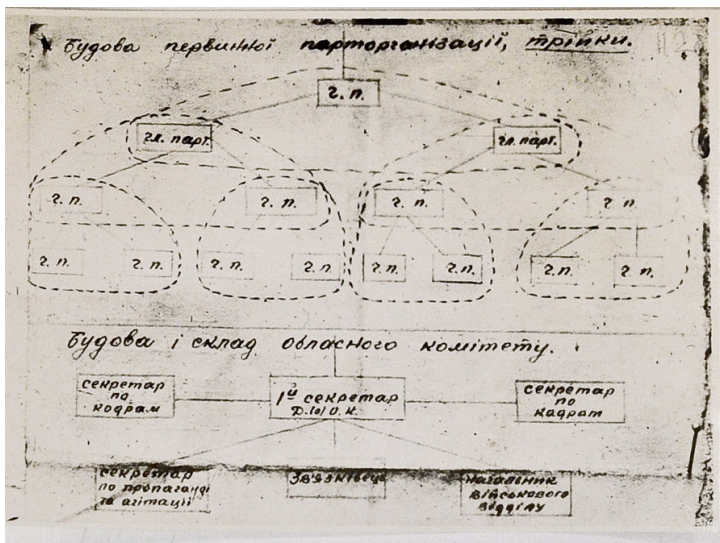 Будова первинної парторганізації, трійки.
г. п.
гл. парт.
гл. парт.
г. п.
г. п.
г. п.
г. п.
г. п.
г. п.
г. п.
г. п.
г. п.
г. п.
г. п.
г. п.
Будова і склад обласного комітету.
секретар
по
кадрам
1й секретар
О.К.
секретар
по
кадрам
секретар
по пропаганді
та агітації
Зв'язківець
начальник
військового
відділу